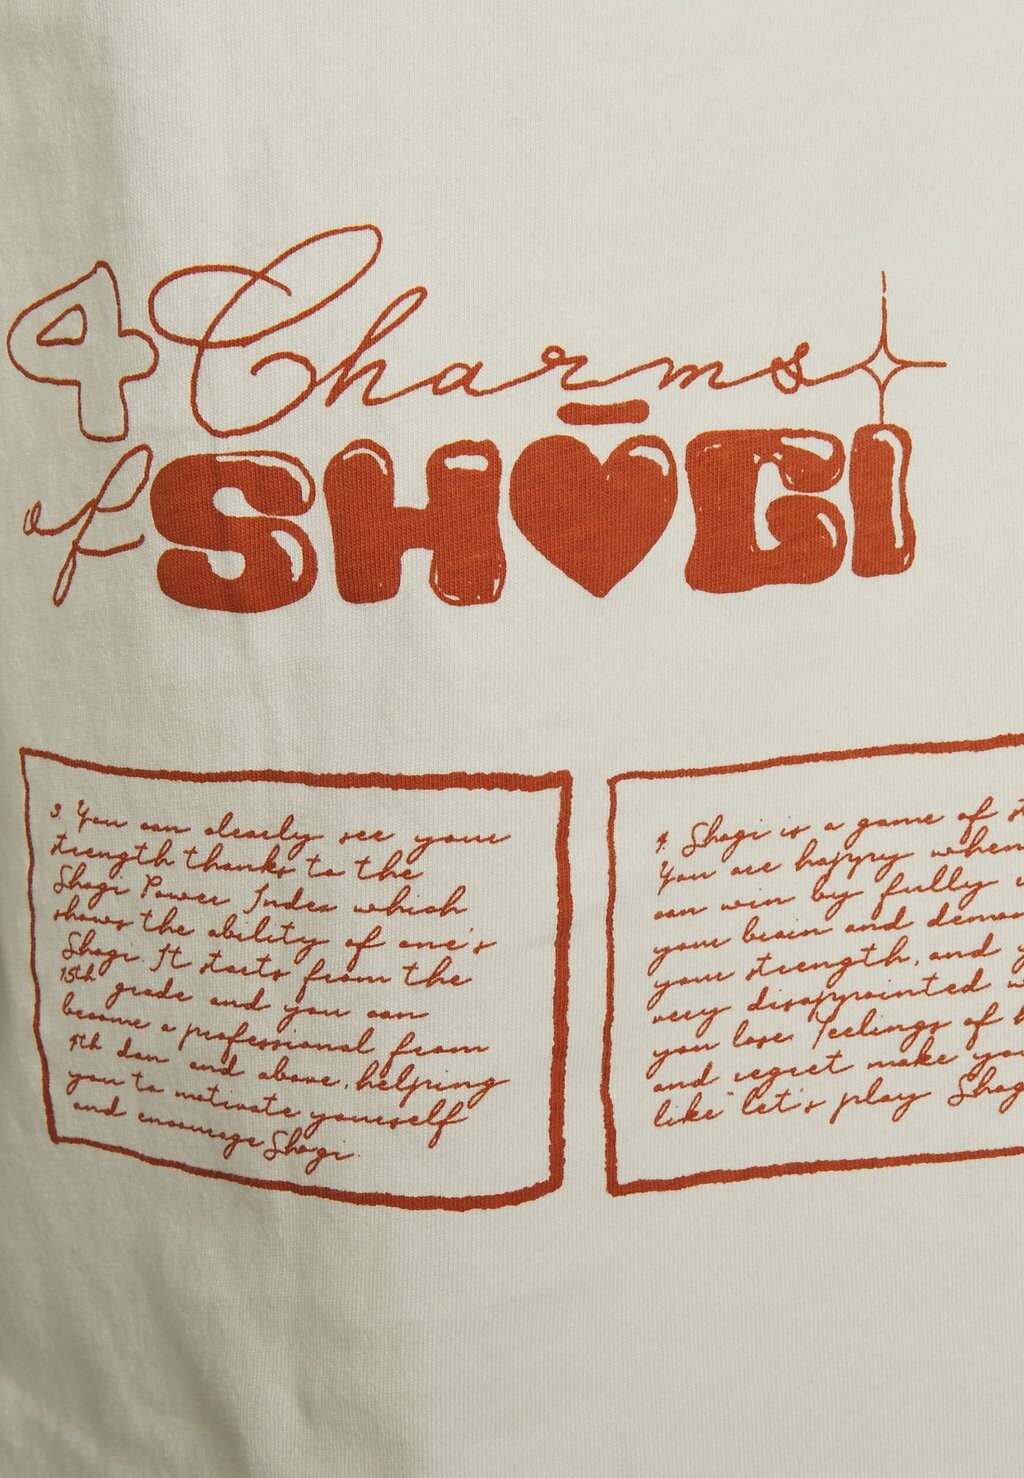 4 Charms
of SHŌGI
3. You can clearly see your
strength thanks to the
Shogi Power Index which
shows the ability of one's
Shogi. It starts from the
15th grade and you can
become a professional from
4th dan and above, helping
you to motivate yourself
and encourage Shogi.
4. Shogi is a game of st
You are happy when
can win by fully u
your brain and demon
your strength, and y
very disappointed w
you lose. Feelings of h
and regret make you
like "let's play Shog